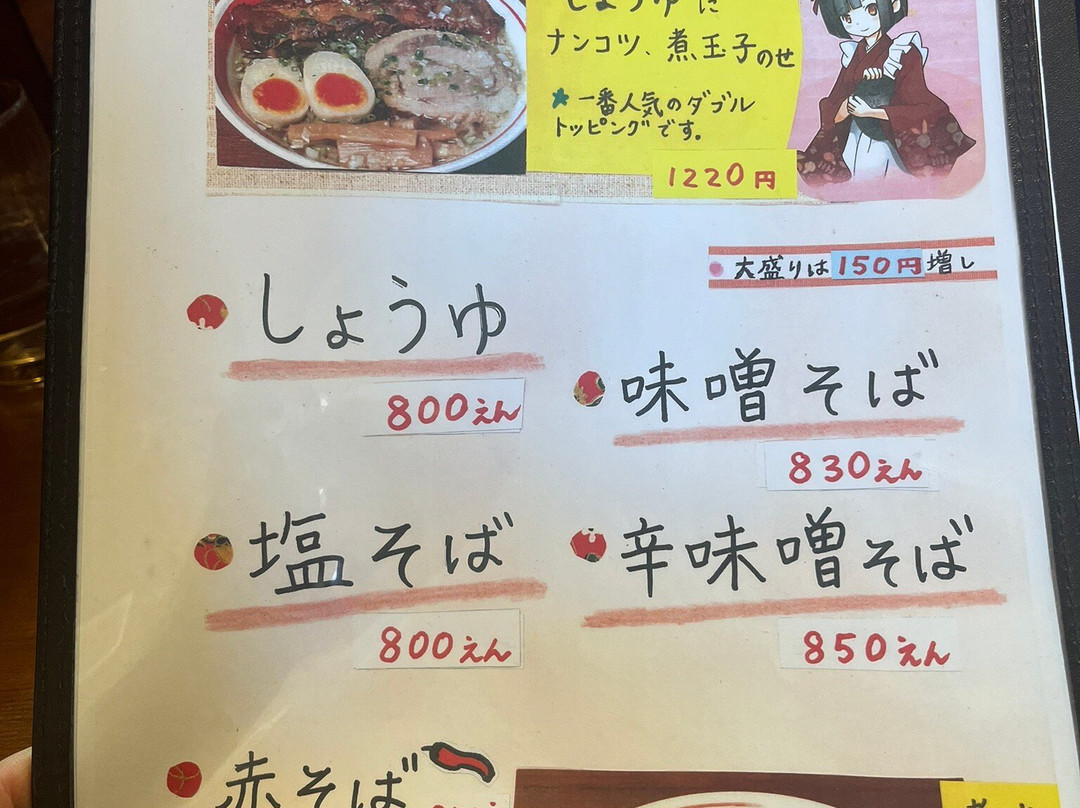 しょうゆに
ナンコツ、煮玉子のせ
★一番人気のダブル
トッピングです。
1220円
大盛りは150円増し
しょうゆ
800えん
味噌そば
830えん
塩そば
800えん
辛味噌そば
850えん
赤そば